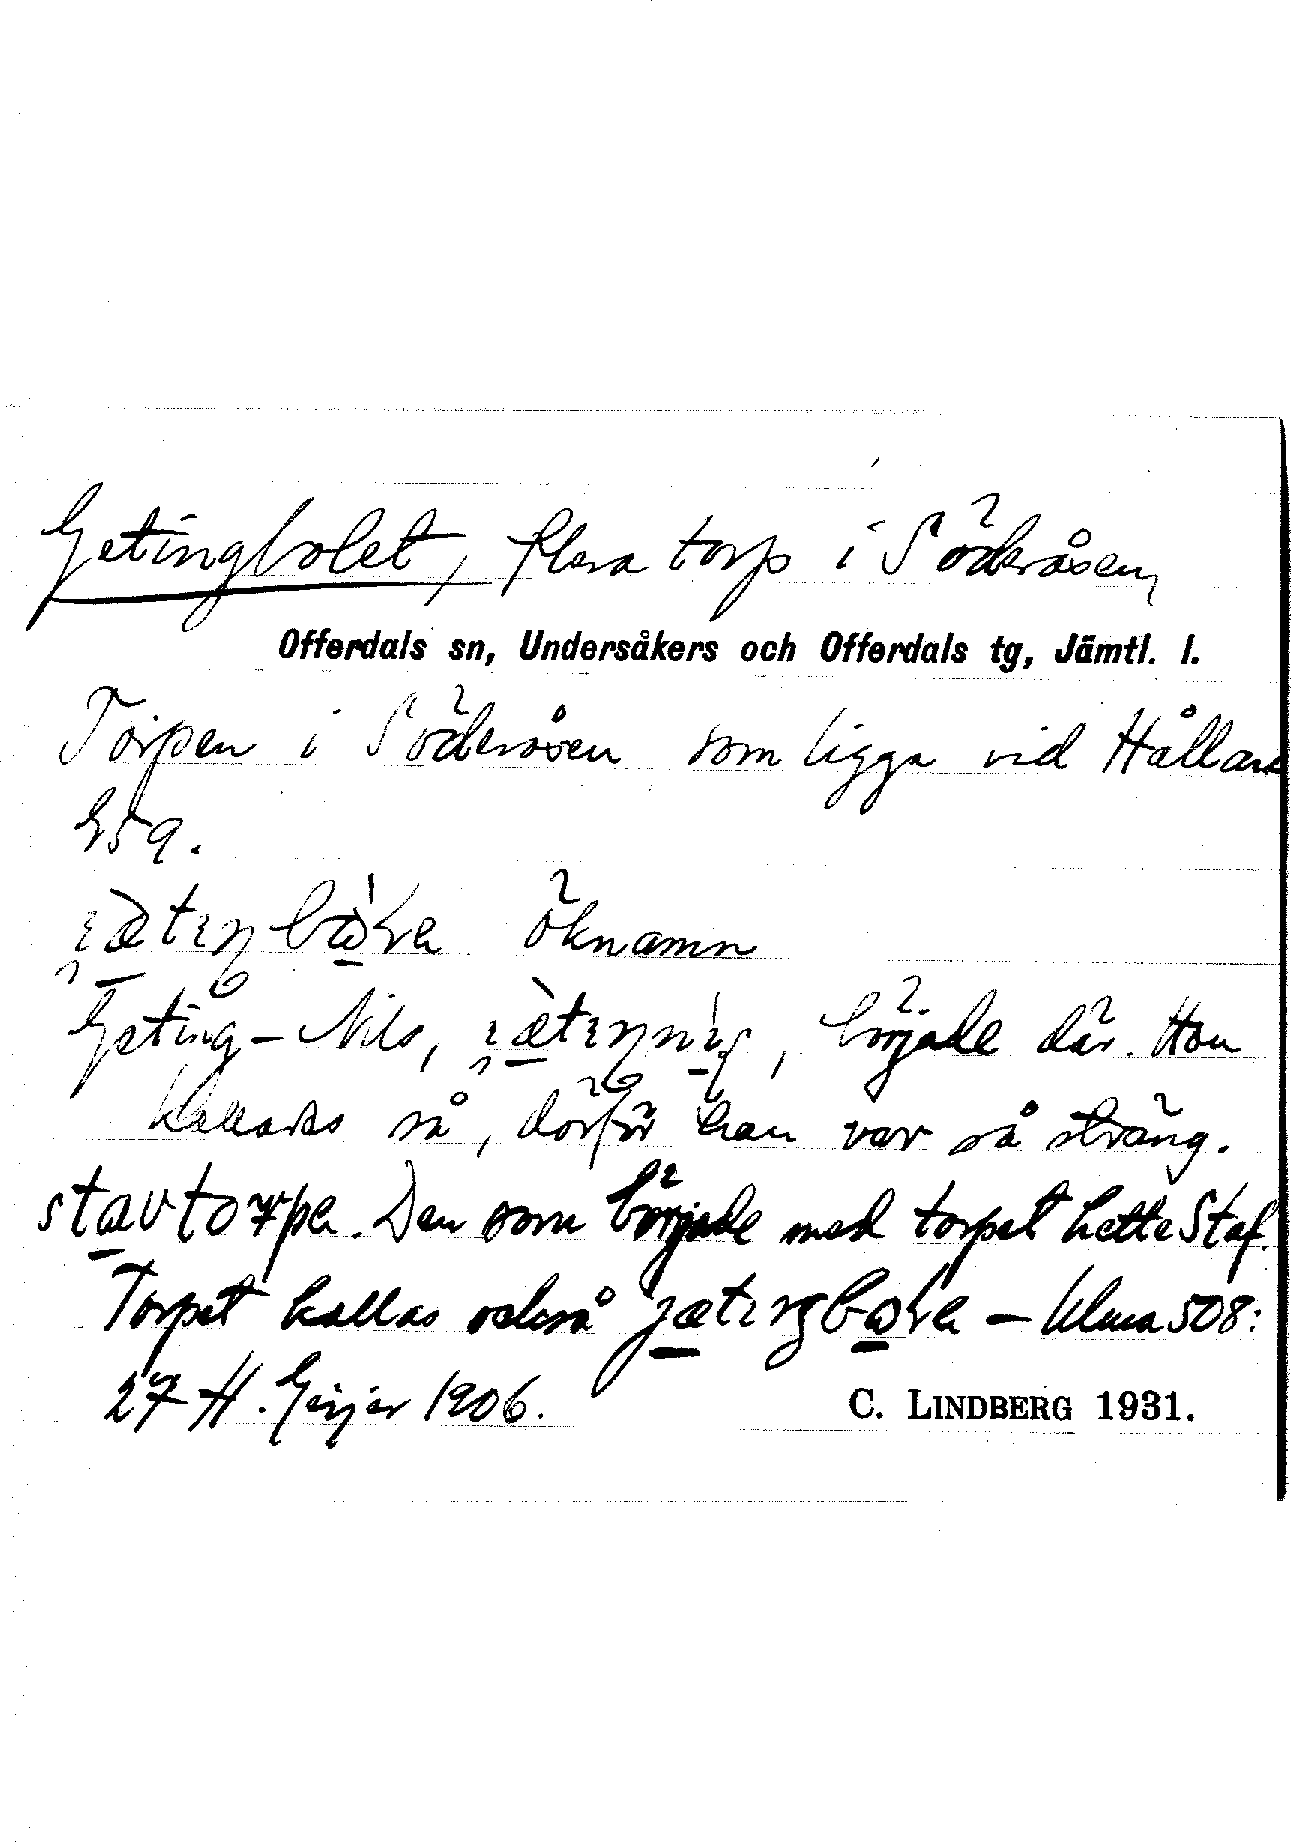 Getingbolet, flera torp i Söderåsen,
Offerdals sn, Undersåkers och Offerdals tg, Jämtl. l.
Torpen i Söderåsen som ligga vid Hållans
859.
öknamn
Geting-Nils, började där. Han
kallades så, därför han var så sträng.
stavtorpa. Den som började med torpet hette Staf.
Torpet kallas också jætıŋbola – Ulma 508:
27 H. Geijer 1906.
C. LINDBERG 1931.